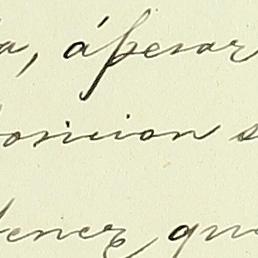 a, ápesar
osicion s
tener qu